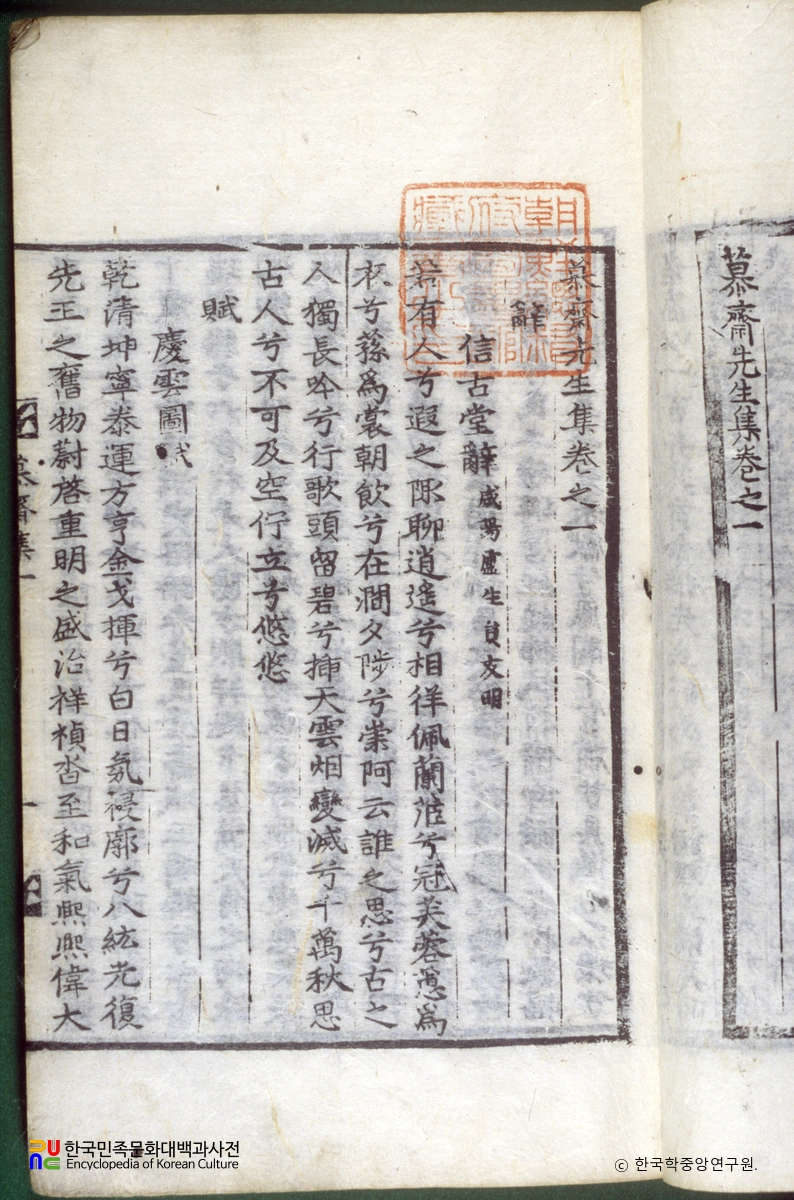 慕齋先生集卷之一
慕齋先生集卷之一
辭
信古堂辭 咸陽盧生貞友明
若有人兮遐之陬聊逍遙兮相徉佩蘭茝兮冠芙蓉蕙爲
杯兮蓀爲裳朝飮兮在澗夕陟兮崇阿云誰之思兮古之
人獨長吟兮行歌頭留碧兮揷天雲烟變滅兮千萬秋思
古人兮不可及空佇立兮悠悠
賦
慶雲圖賦
乾清坤寧泰運方亨金戈揮兮白日氛祲廓兮八紘光復
先王之舊物蔚啓重明之盛治祥禎沓至和氣熙熙偉大
慕齋集一
한국민족문화대백과사전
Encyclopedia of Korean Culture
ⓒ 한국학중앙연구원.